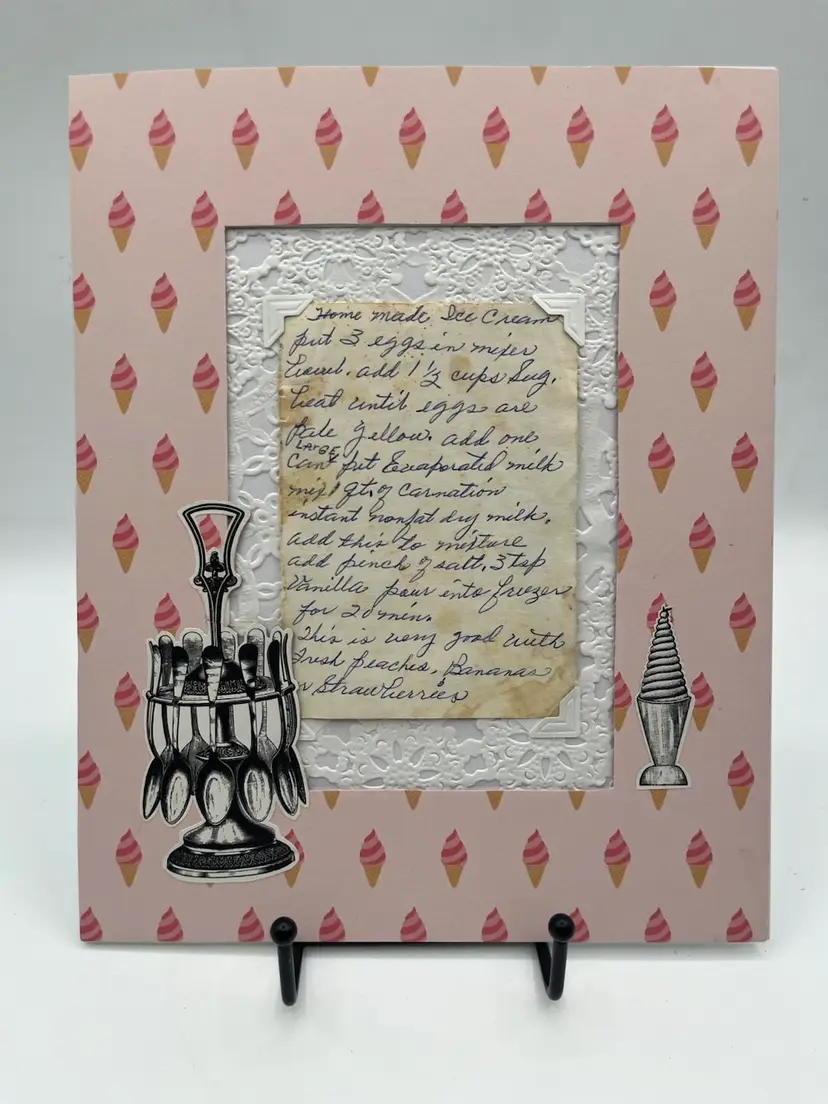 Home made Ice Cream
put 3 eggs in mixer
bowl. add 1 1/2 cups Sug.
beat until eggs are
pale yellow. add one
LARGE
can put Evaporated milk
mix 1 qt. of Carnation
instant nonfat dry milk.
add this to mixture
add pinch of salt, 3 tsp
Vanilla pour into freezer
for 20 min.
This is very good with
Fresh peaches, Bananas
r Strawberries